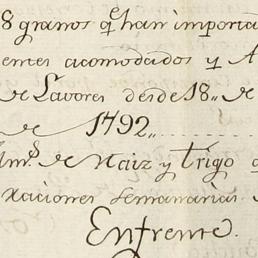 8 granos q.e han importa
entes acomodados y A
de Lavores desde 18,, de
de 1792,,
Am.s de Maiz y Trigo q
xaciones semanarias
Enfrente.